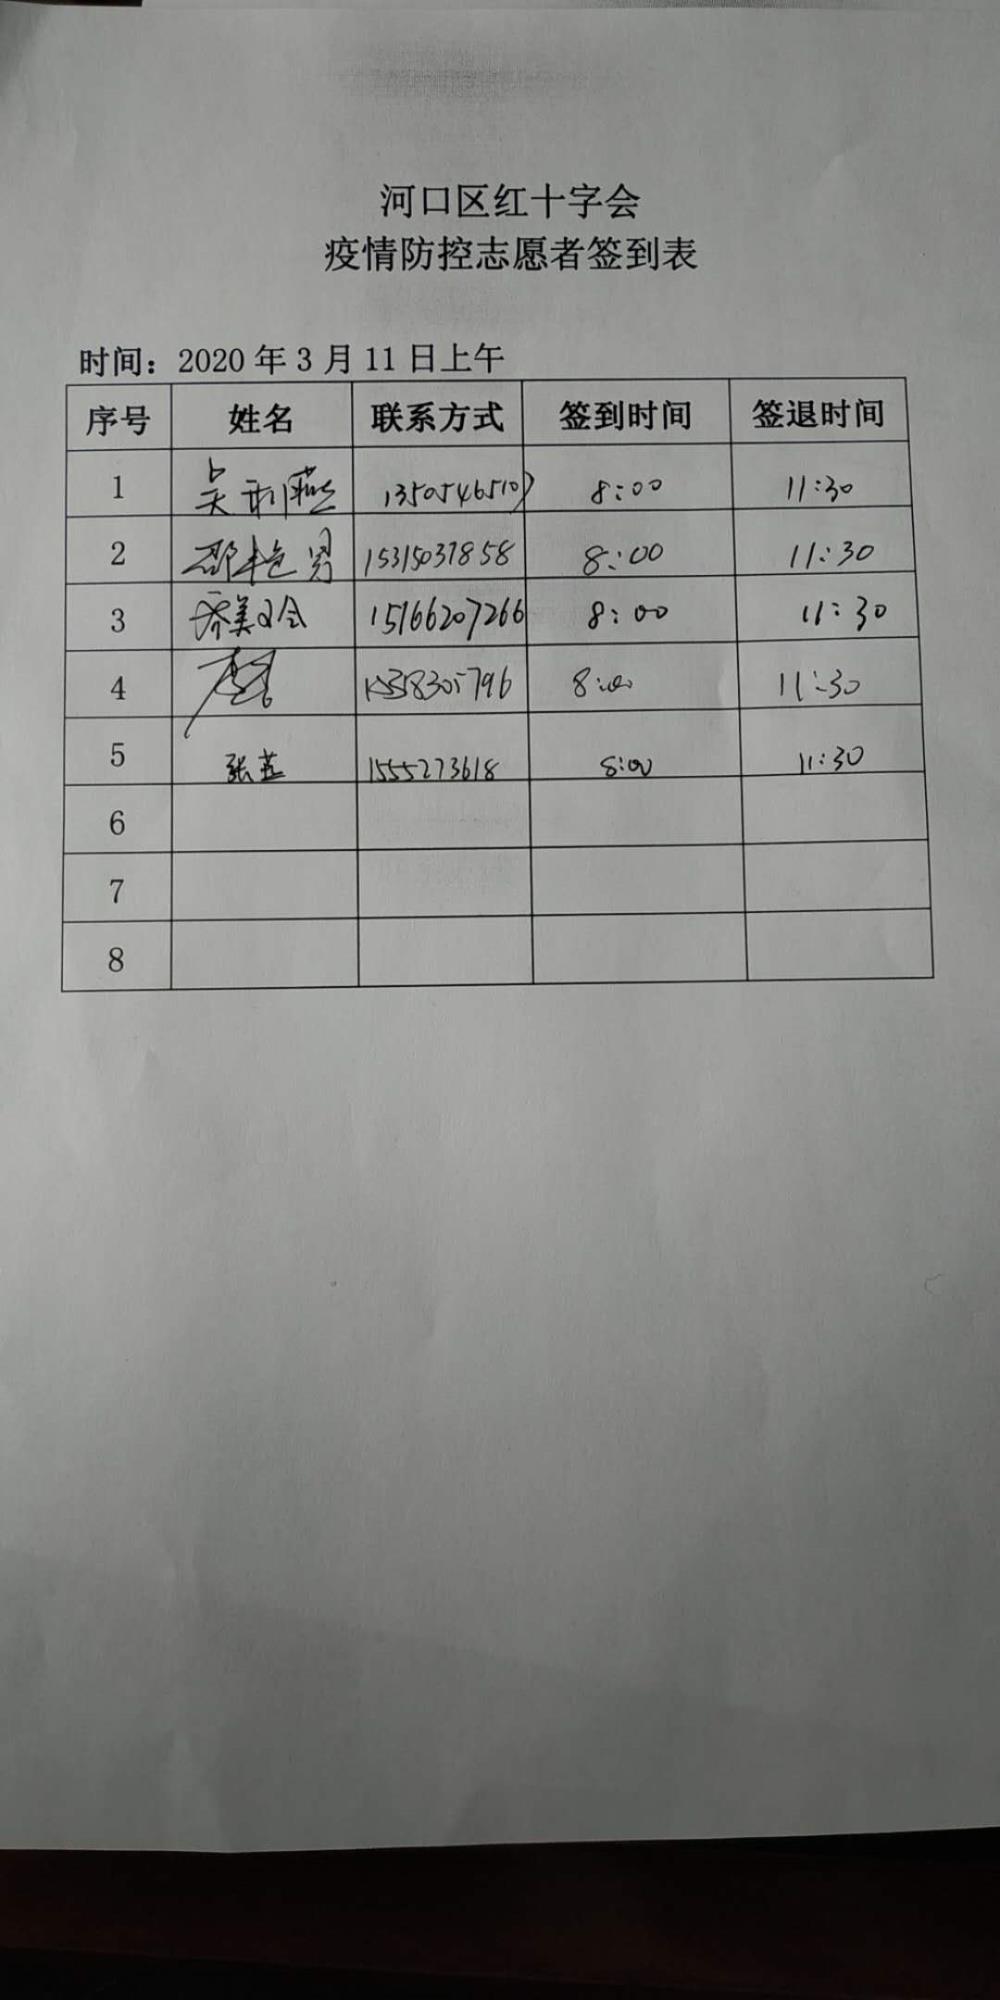 河口区红十字会
疫情防控志愿者签到表
时间：2020年3月11日上午
序号 姓名 联系方式 签到时间 签退时间
1 吴利燕 13505465107 8:00 11:30
2 邵艳男 15315037858 8:00 11:30
3 乔美玲 15166207266 8:00 11:30
4 8:00 11:30
5 张芷 1555273618 8:00 11:30
6
7
8